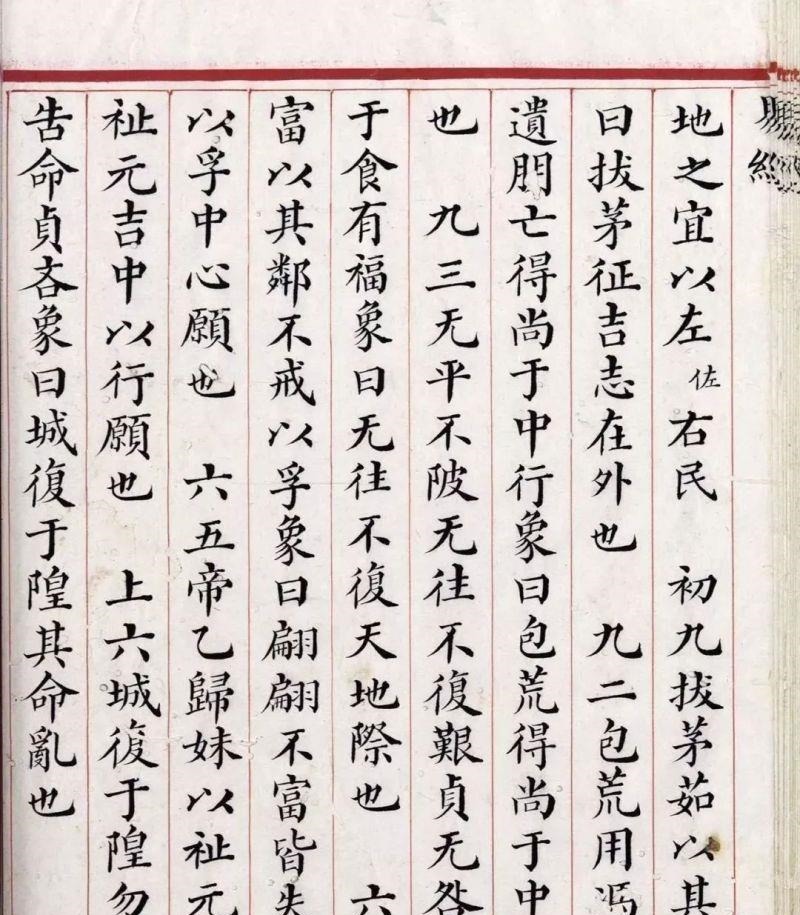 地之宜以左佐右民　初九拔茅茹以其
曰拔茅征吉志在外也　九二包荒用馮
遺朋亡得尚于中行象曰包荒得尚于中
也　九三无平不陂无往不復艱貞无咎
于食有福象曰无往不復天地際也　六
富以其鄰不戒以孚象曰翩翩不富皆失
以孚中心願也　六五帝乙歸妹以祉元
祉元吉中以行願也　上六城復于隍勿
告命貞吝象曰城復于隍其命亂也